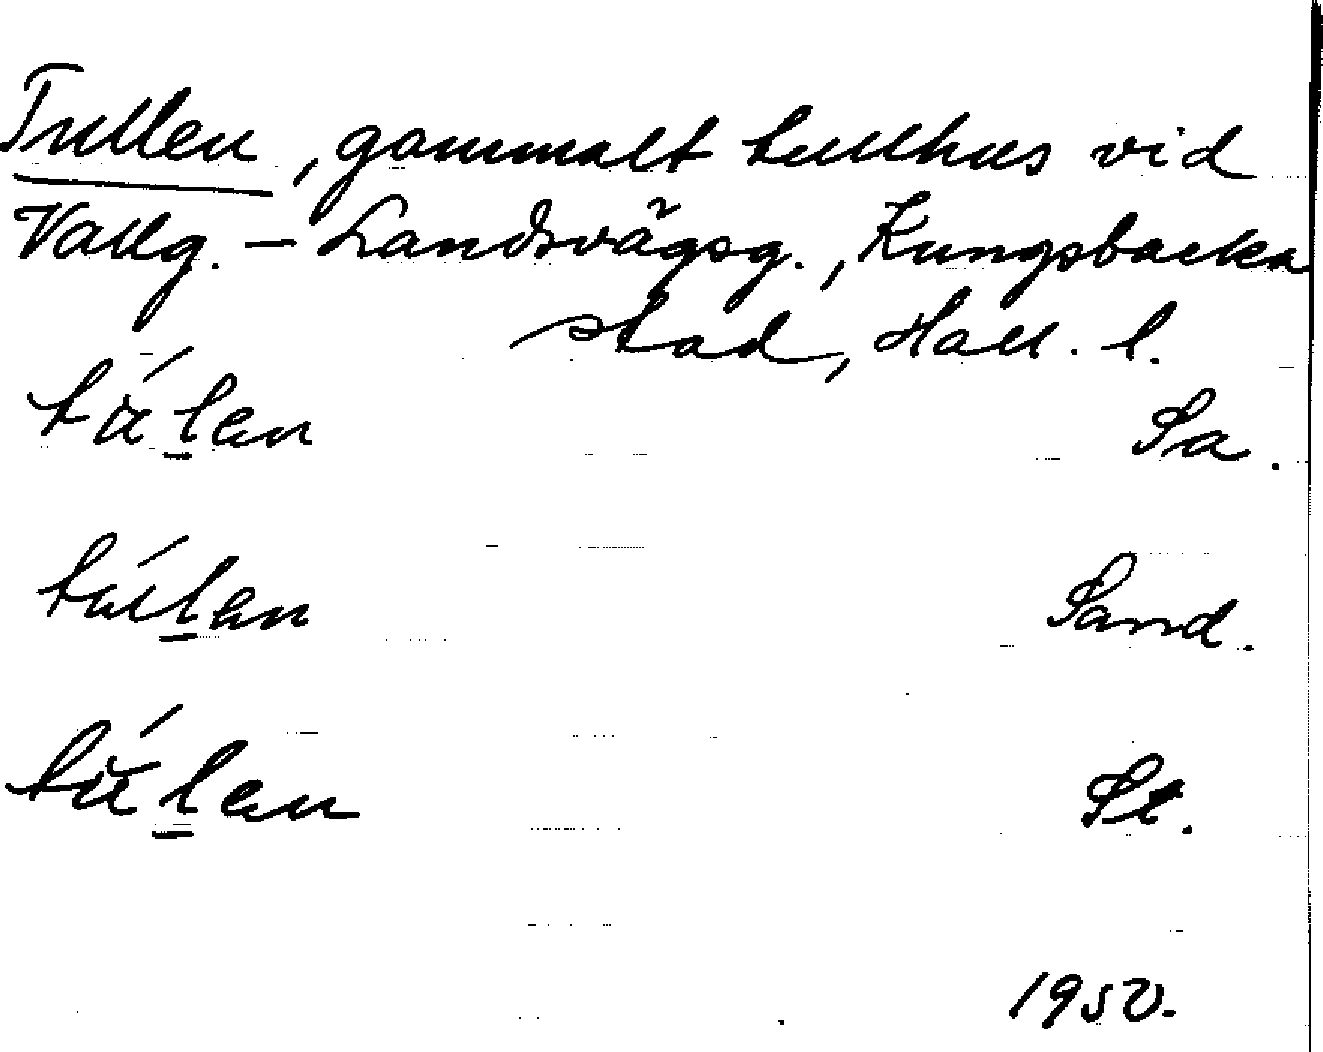 Tullen, gammalt tullhus vid
Vallg. – Landsvägsg., Kungsbacka
stad, Hall. l.
túl̲en Sa.
túl̲en Sand.
túl̲en St.
1950.